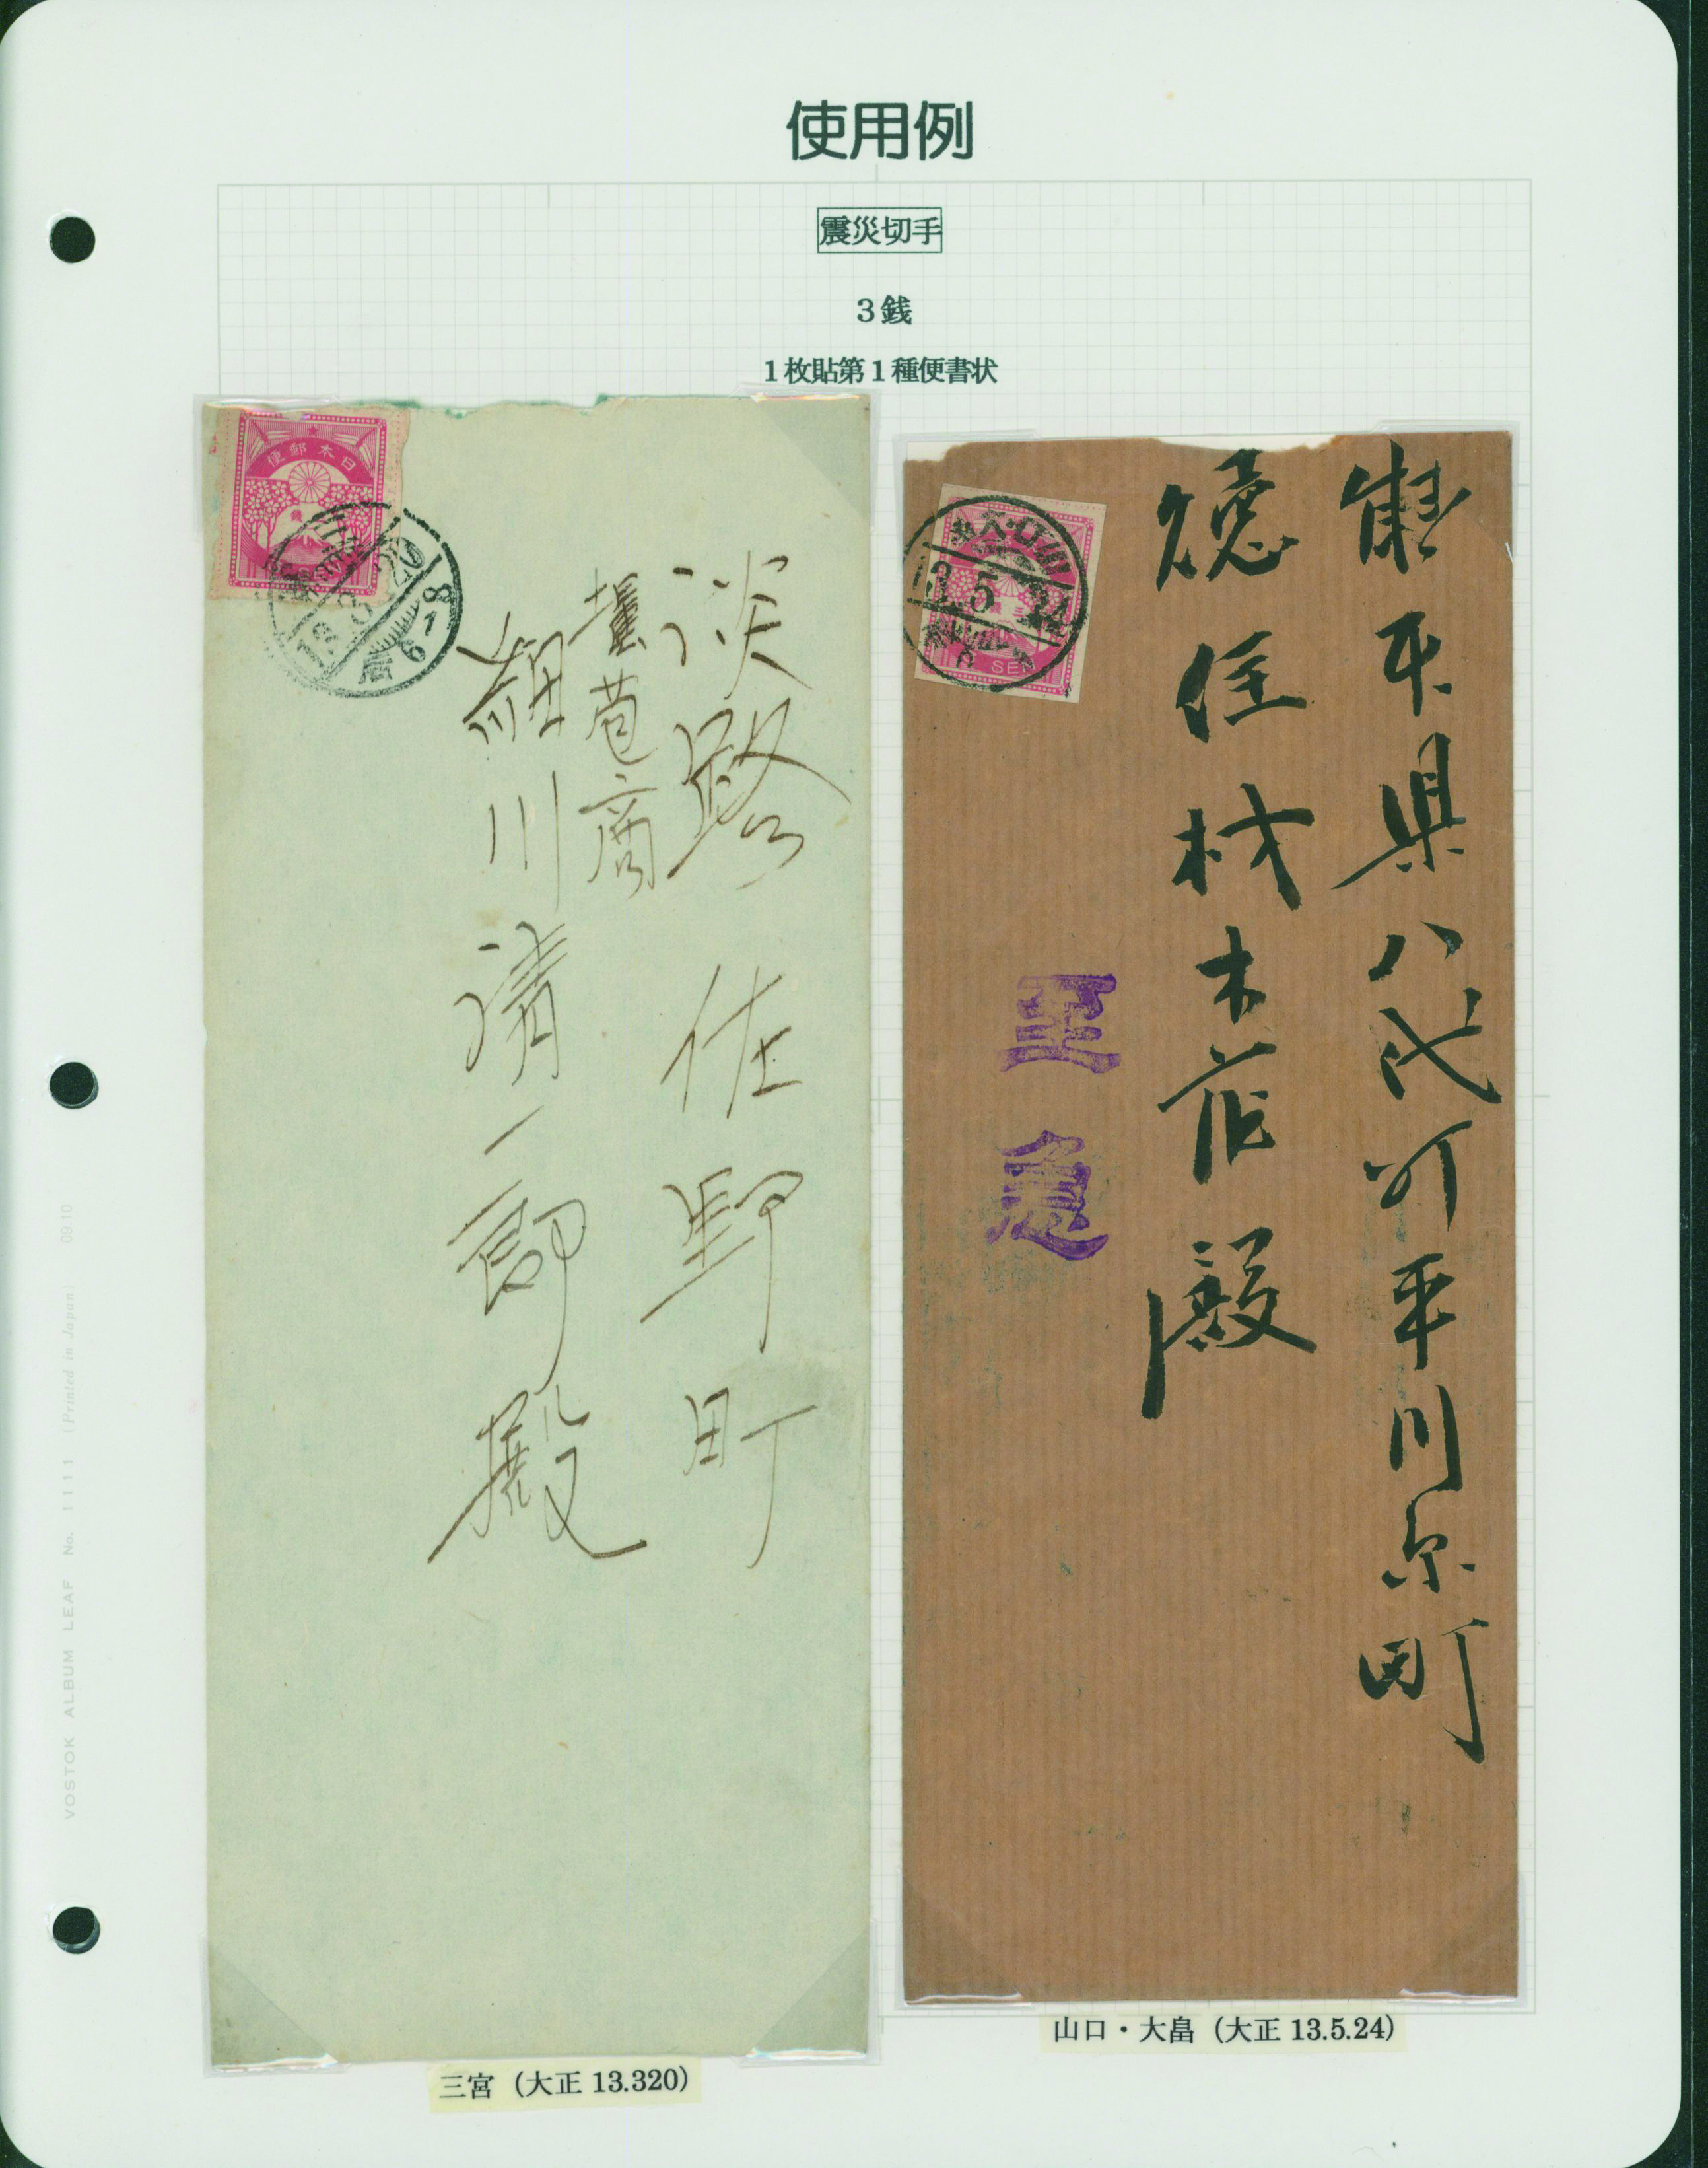 使用例
震災切手
3銭
1枚貼第1種便書状
日本郵便
13.3.20
淡路佐野町
菰商
細川清一郎殿
山口・大畠
13.5.24
SEN
熊本県八代町平川原町
住材木店殿
至急
三宮（大正 13.320）
山口・大畠（大正 13.5.24）
VOSTOK ALBUM LEAF No. 1111 (Printed in Japan) 0910